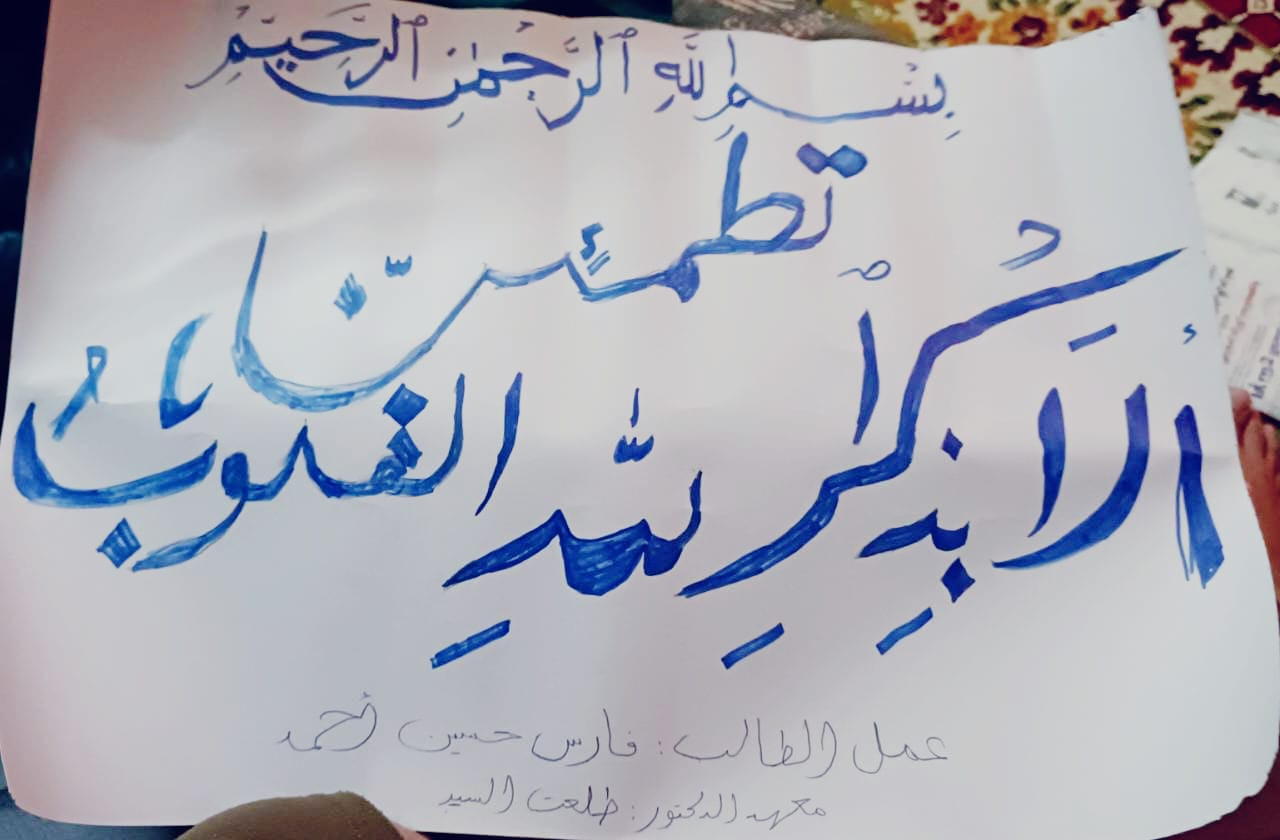 بِسْمِ اللَّهِ ٱلرَّحْمٰنِ ٱلرَّحِيمِ
أَلَا بِذِكْرِ ٱللَّهِ تَطْمَئِنُّ الْقُلُوبُ
عمل الطالب: فارس حسين أحمد
معهد الدكتور: طلعت السيد